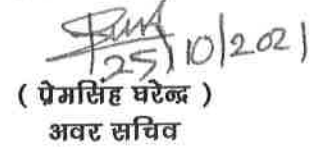 25/10/2021
( प्रेमसिंह घरेन्द्र )
अवर सचिव